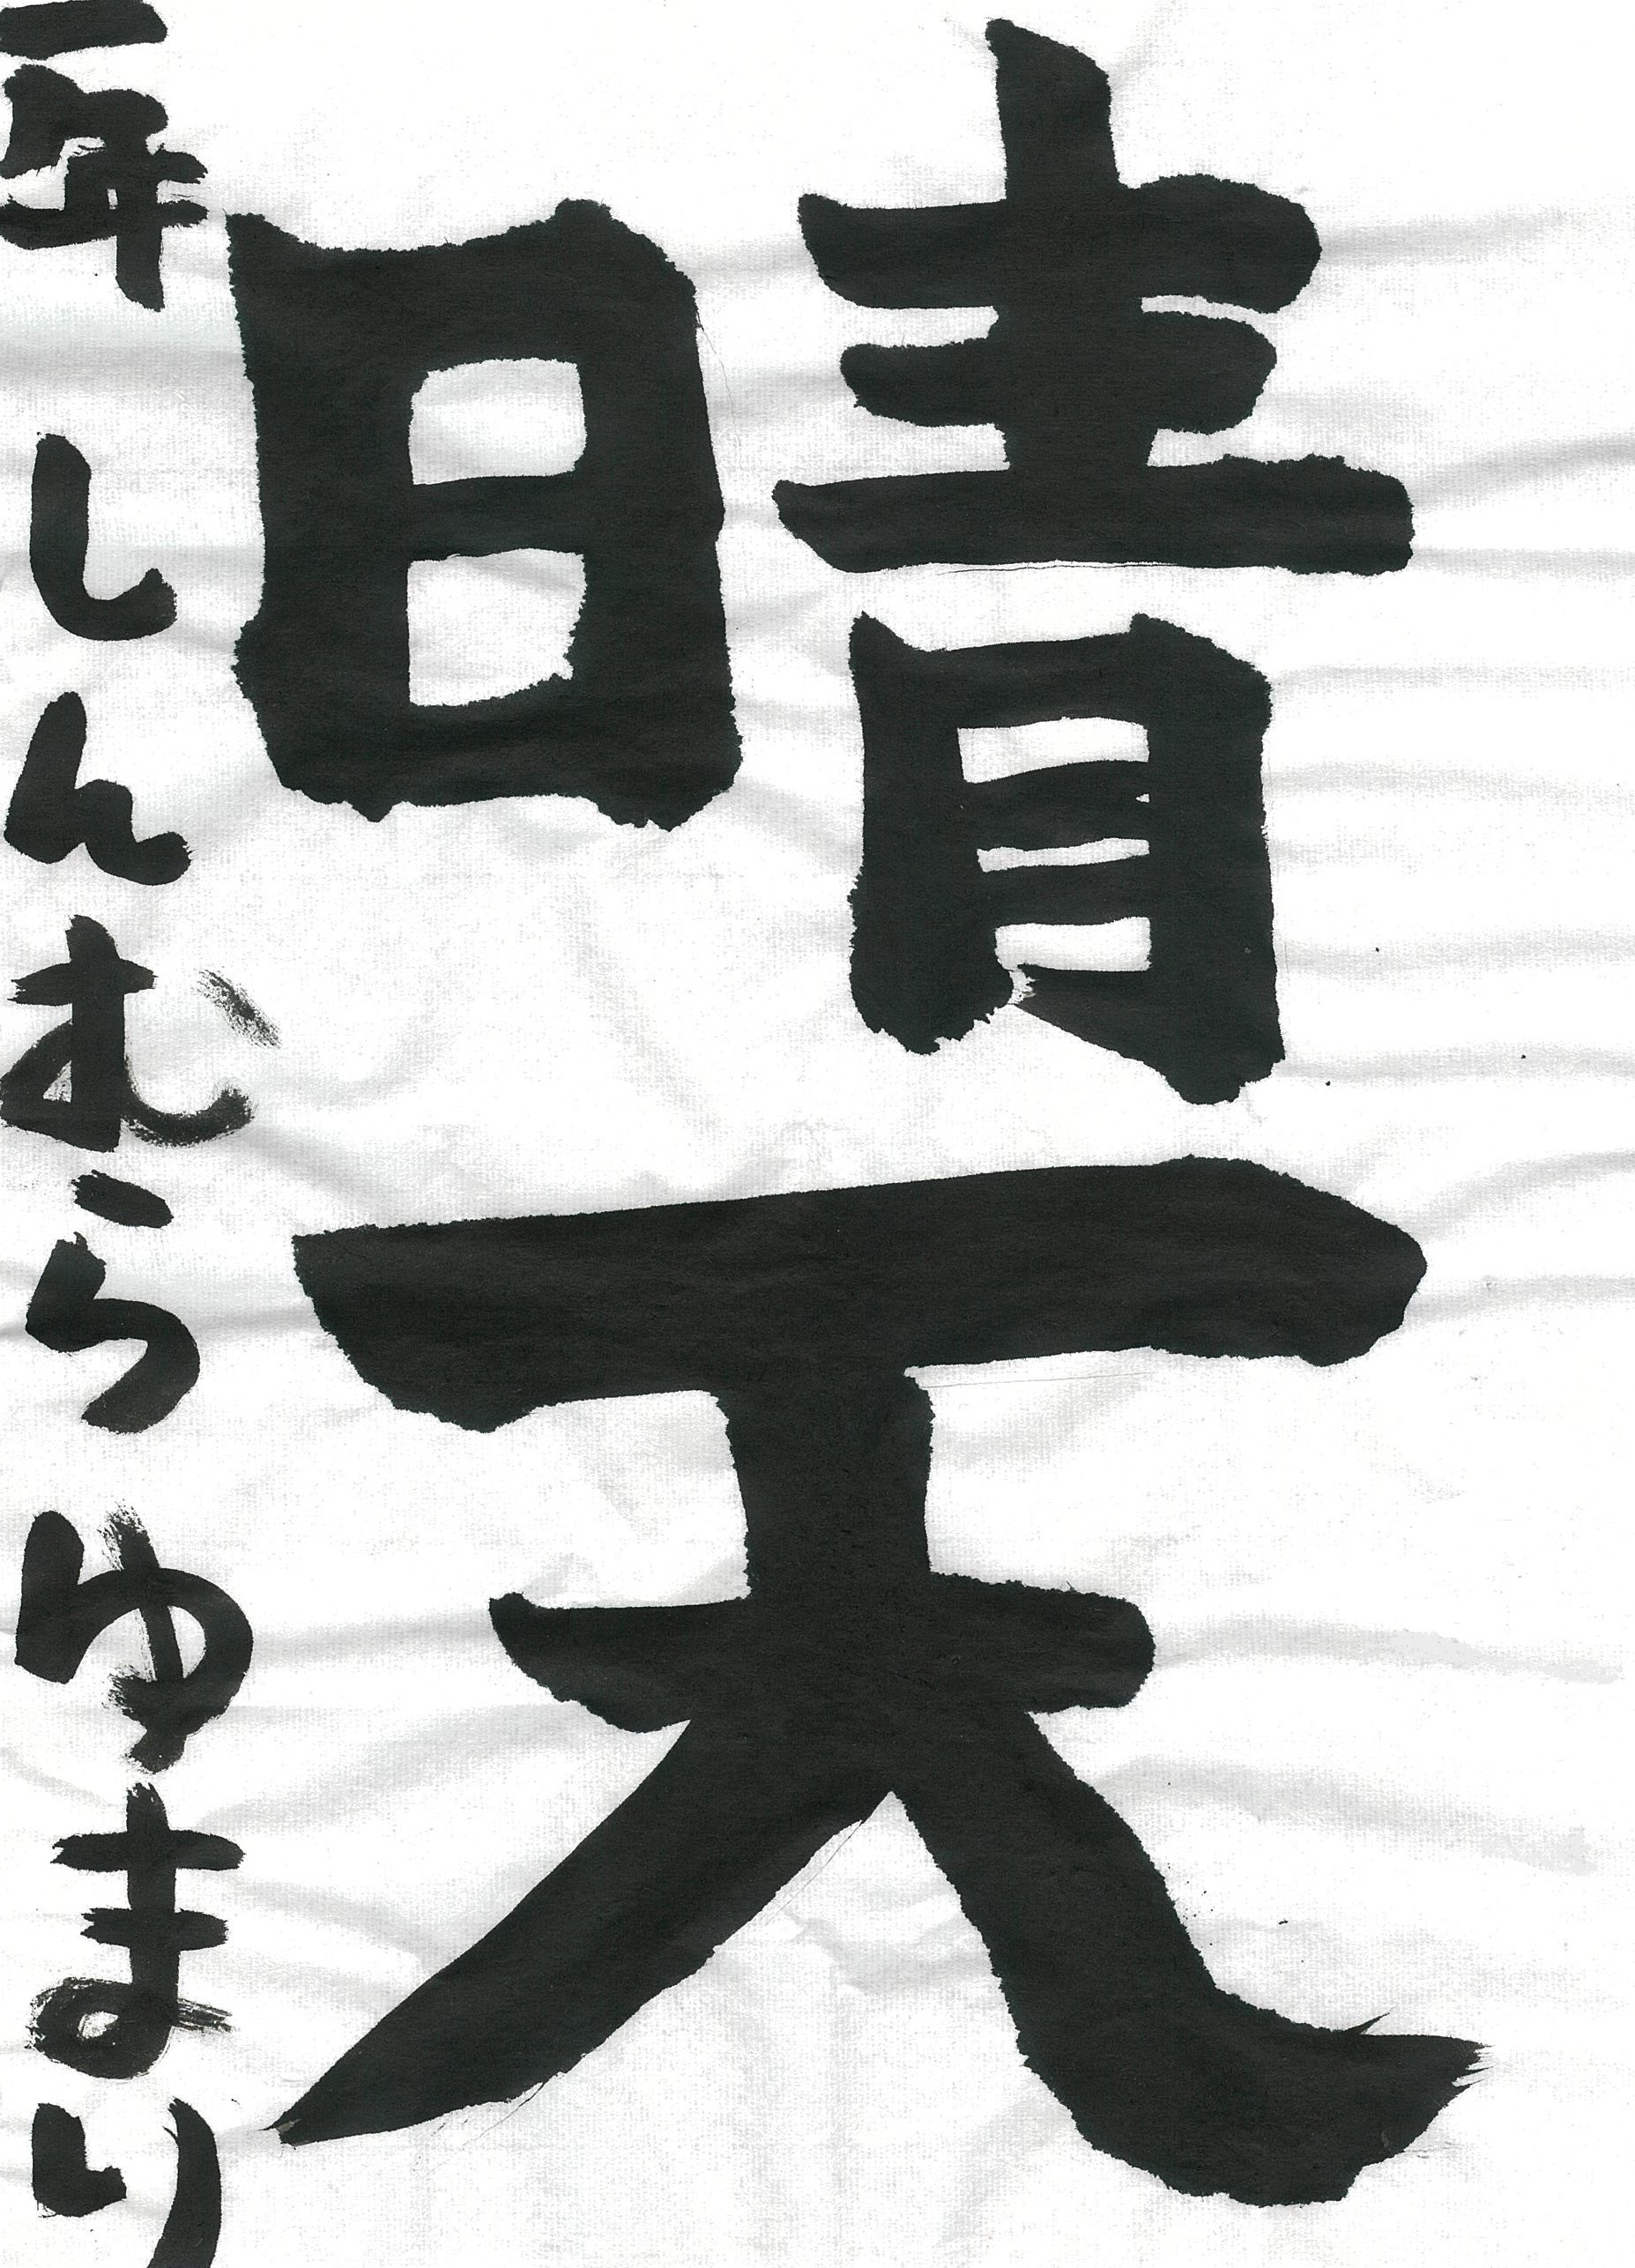 晴天
年 しんむら ゆまり